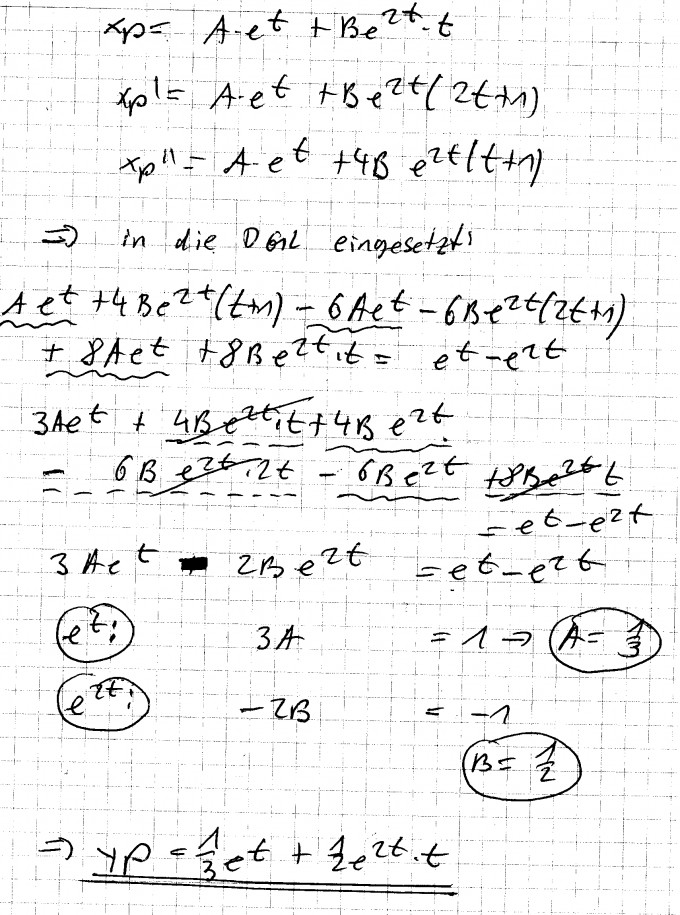 xp= A·e^t + Be^2t·t
xp'= A·e^t +Be^2t(2t+1)
xp''= A·e^t +4B e^2t(t+1)
=> in die DGL eingesetzt:
Ae^t +4Be^2t(t+1) - 6Ae^t - 6Be^2t(2t+1)
+ 8Ae^t +8Be^2t·t = e^t-e^2t
3Ae^t + 4Be^2t·t+4Be^2t
- 6Be^2t·2t - 6Be^2t +8Be^2t t
= e^t-e^2t
3Ae^t - 2Be^2t = e^t-e^2t
e^t: 3A = 1 → A= 1/3
e^2t: -2B = -1
B= 1/2
=> yp = 1/3 e^t + 1/2 e^2t·t